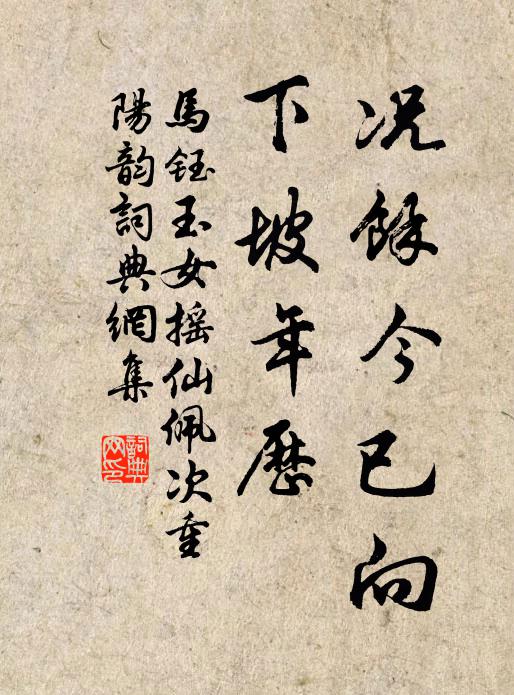 況餘今已向
下坡年歷
馬鈺玉女搖仙佩次重
陽韵詞典網集
詞典網印